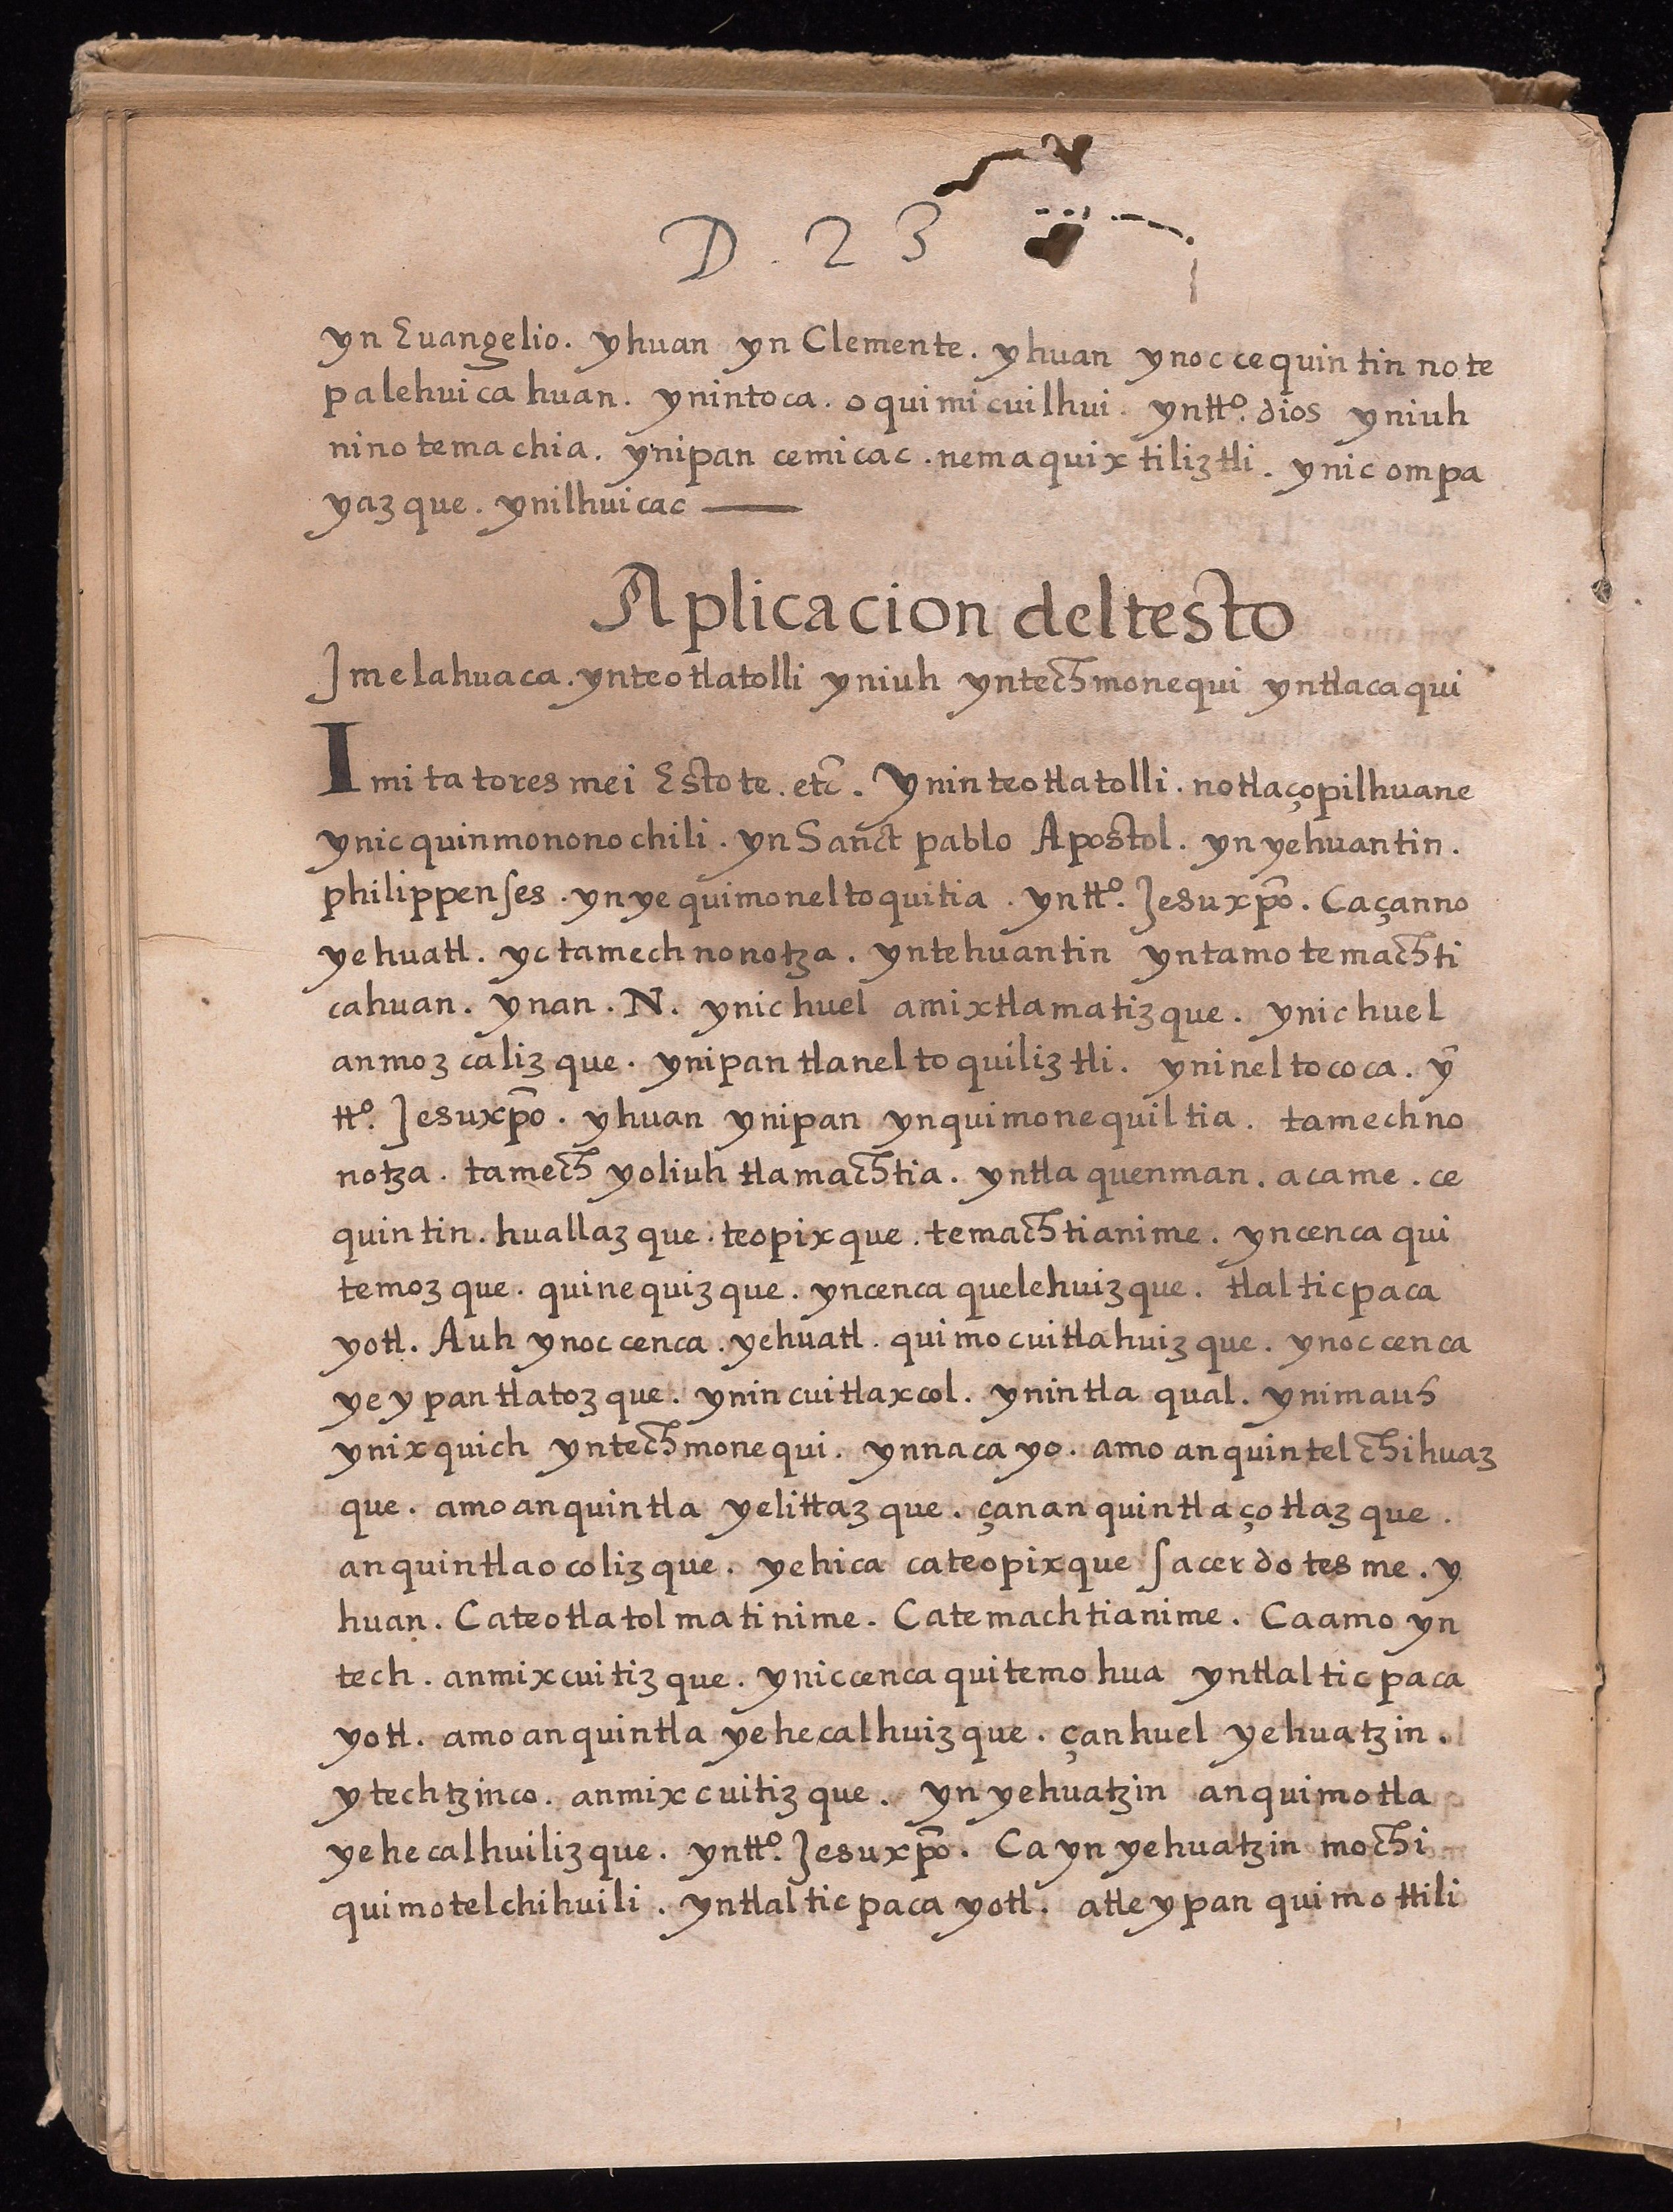 D. 23
yn Euangelio. yhuan yn Clemente. yhuan ynoc cequintin note
palehuicahuan. ynintoca. oquimicuilhui. yntt̊. dios yniuh
ninotemachia. ynipan cemicac. nemaquixtiliztli. ynic ompa
yazque. ynilhuicac —
Aplicacion deltesto
Jmelahuaca. ynteotlatolli yniuh yntech monequi yntlacaqui
Imitatores mei Estote. etc̃. Ynin teotlatolli. notlaçopilhuane
ynic quinmononochili. yn Sanct pablo Apostol. yn yehuantin.
philippenſes. yn ye quimoneltoquitia. yntt̊. Jesu xp̃o. Caçanno
yehuatl. yc tamechnonotza. yntehuantin yntamotemachti
cahuan. ynan. N. ynic huel amixtlamatizque. ynic huel
anmozcalizque. ynipan tlaneltoquiliztli. ynineltococa. ỹ
tt̊. Jesuxp̃o. yhuan ynipan ynquimonequiltia. tamechno
notza. tamech yoliuhtlamachtia. yntla quenman. acame. ce
quintin. huallazque. teopixque. temachtianime. yncenca qui
temozque. quinequizque. yncenca quelehuizque. tlalticpaca
yotl. Auh ynoc cenca. yehuatl. quimocuitlahuizque. ynoc cenca
ye ypan tlatozque. ynincuitlaxcol. ynintlaqual. ynimauh
ynixquich yntech monequi. ynnacayo. amo anquintelchihuaz
que. amo anquintlayelittazque. çan anquintlaçotlazque.
anquintlaocolizque. yehica cateopixque ſacerdotesme. y
huan. Cateotlatolmatinime. Catemachtianime. Caamo yn
tech. anmixcuitizque. yniccenca quitemohua yntlalticpaca
yotl. amo anquintlayehecalhuizque. çanhuel yehuatzin.
ytechtzinco. anmixcuitizque. yn yehuatzin anquimotla
yehecalhuilizque. yntt̊. Jesuxp̃o. Ca yn yehuatzin mochi
quimotelchihuili. yntlalticpacayotl. atle ypan quimottili